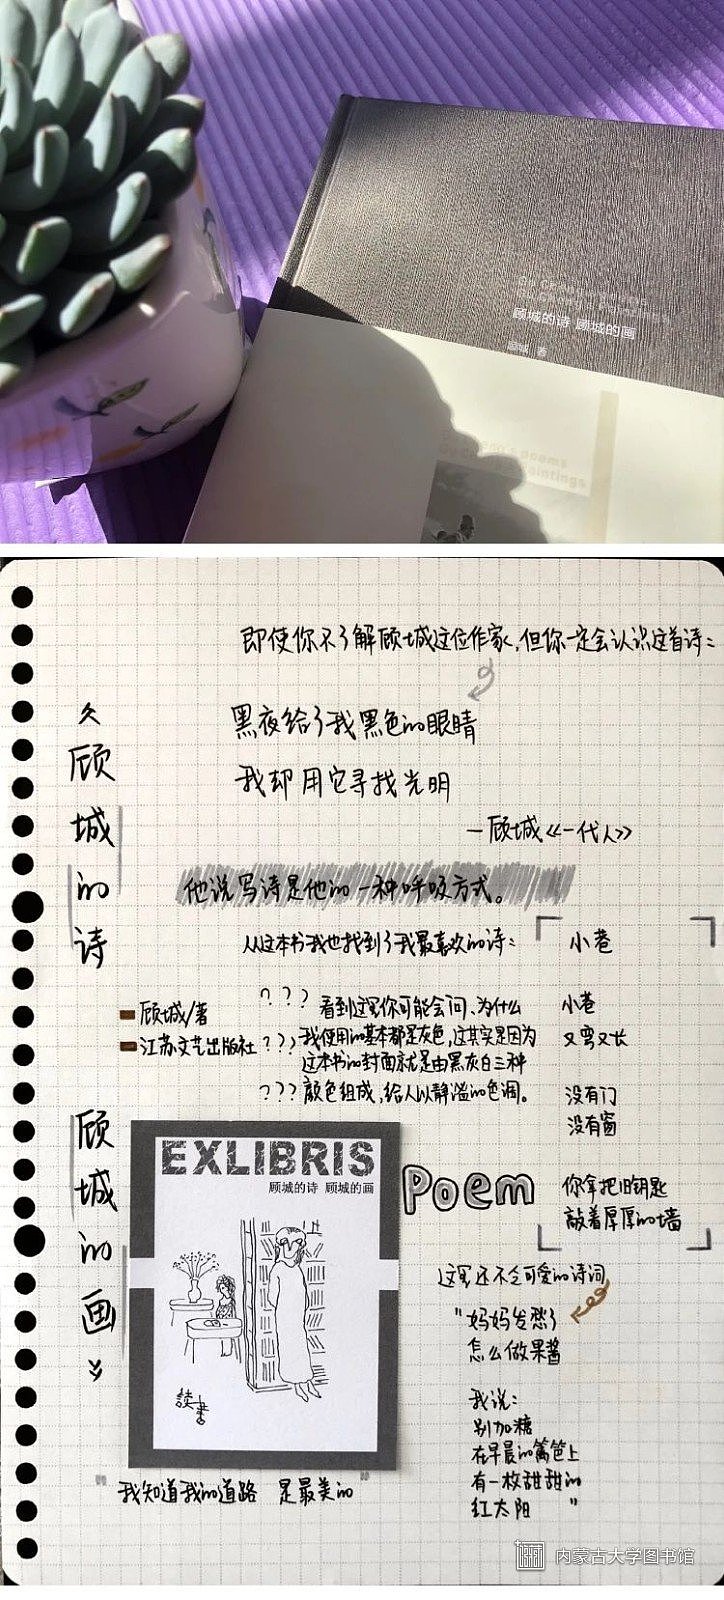 顾城的诗 顾城的画
顾城 著
即使你不了解顾城这位作家,但你一定会认识这首诗:
黑夜给了我黑色的眼睛
我却用它寻找光明
—顾城《一代人》
他说写诗是他的一种呼吸方式。
从这本书我也找到了我最喜欢的诗:
小巷
小巷
又弯又长
没有门
没有窗
你拿把旧钥匙
敲着厚厚的墙
《顾城的诗
顾城的画》
顾城/著
江苏文艺出版社
??? 看到这里你可能会问、为什么
??? 我使用的基本都是灰色,这其实是因为
这本书的封面就是由黑灰白三种
??? 颜色组成,给人以静谧的色调。
EXLIBRIS
顾城的诗 顾城的画
読书
Poem
这里还不乏可爱的诗词
"妈妈发愁了
怎么做果酱
我说:
别加糖
在早晨的篱笆上
有一枚甜甜的
红太阳"
"我知道我的道路 是最美的"
内蒙古大学图书馆